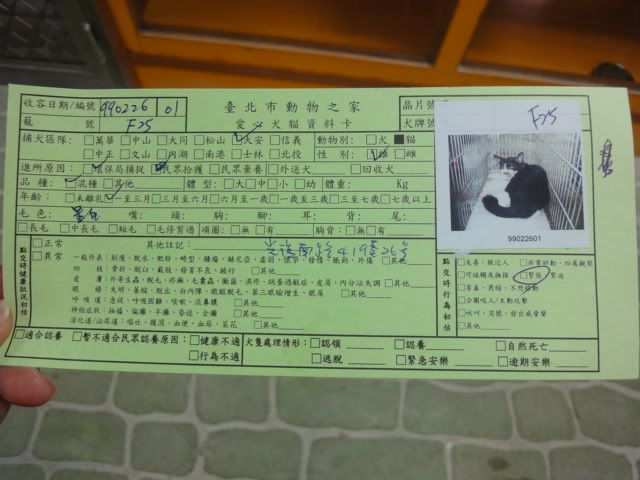 收容日期/編號 990226 01 臺北市動物之家 晶片號
籠 號 F25 愛心犬貓資料卡 犬牌號
F25
捕犬區隊: □萬華 □中山 □大同 □松山 ☑大安 □信義 動物別: □犬 ■貓
□中正 □文山 □內湖 □南港 □士林 □北投 性 別: ☑雄 □雌
進所原因: ☑環保局捕捉 □民眾拾獲 □民眾棄養 □外送犬 □回收犬
品 種: ☑混種 □其他 體 型: □大□中□小□幼 體重: Kg
年齡: □未離乳 ☑至三月 □三月至六月 □六月至一歲 □一歲至三歲 □三至七歲 □七歲以上
毛 色: 黑白 嘴: 頭: 胸: 腳: 耳: 背: 尾:
□長毛 □中長毛 □短毛 □毛修剪過 項圈: □無 □有 胸背: □無 □有
99022601
點交時健康狀況初估
□正常 其他註記: 光復南路419巷26號
□異常 一般外表: 削瘦、脫水、肥胖、畸型、腫瘤、赫尼亞、虛弱、懷孕、發情、脹奶、外傷 □其他
四 肢: 骨折、脫臼、截肢、發育不良、跛行 □其他
皮 膚: 外寄生蟲、脫毛、疥癬、毛囊蟲、黴菌、濕疹、跳蚤過敏症、皮屑、內分泌失調 □其他
眼 睛: 失明、萎縮、脫出、白內障、眼瞼脫毛、第三眼瞼增生、眼屎 □其他
呼 吸 道: 急促、呼吸困難、咳嗽、流鼻膿 □其他
神經症狀: 抽搐、偏癱、半癱、昏迷、全癱 □其他
消化道/泌尿道: 嘔吐、腹瀉、血便、血尿、菜花 □其他
點交時行為初估
□友善、親近人 □非常好動、四處觀察
□可碰觸及撫摸 □緊張、緊迫
□害羞、畏縮、不想移動
□企圖咬人/主動攻擊
□吠叫、哭號、發出威脅聲
□其他
□適合認養 □暫不適合民眾認養原因: □健康不適 犬隻處理情形: □認領 □認養 □自然死亡
□行為不適 □逃脫 □緊急安樂 □逾期安樂